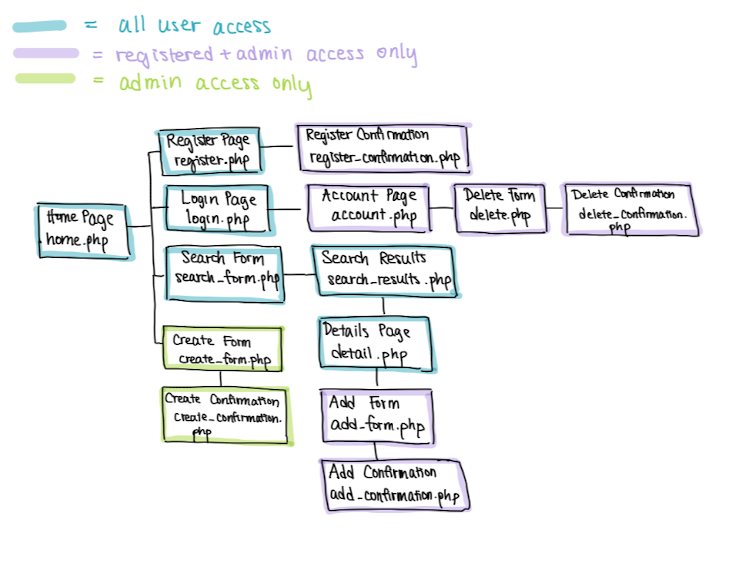 = all user access
= registered + admin access only
= admin access only
Register Page
register.php
Register Confirmation
register_confirmation.php
Login Page
login.php
Account Page
account.php
Delete Form
delete.php
Delete Confirmation
delete_confirmation.
php
Home Page
home.php
Search Form
search_form.php
Search Results
search_results.php
Details Page
detail.php
Create Form
create_form.php
Create Confirmation
create_confirmation.
php
Add Form
add_form.php
Add Confirmation
add_confirmation.php